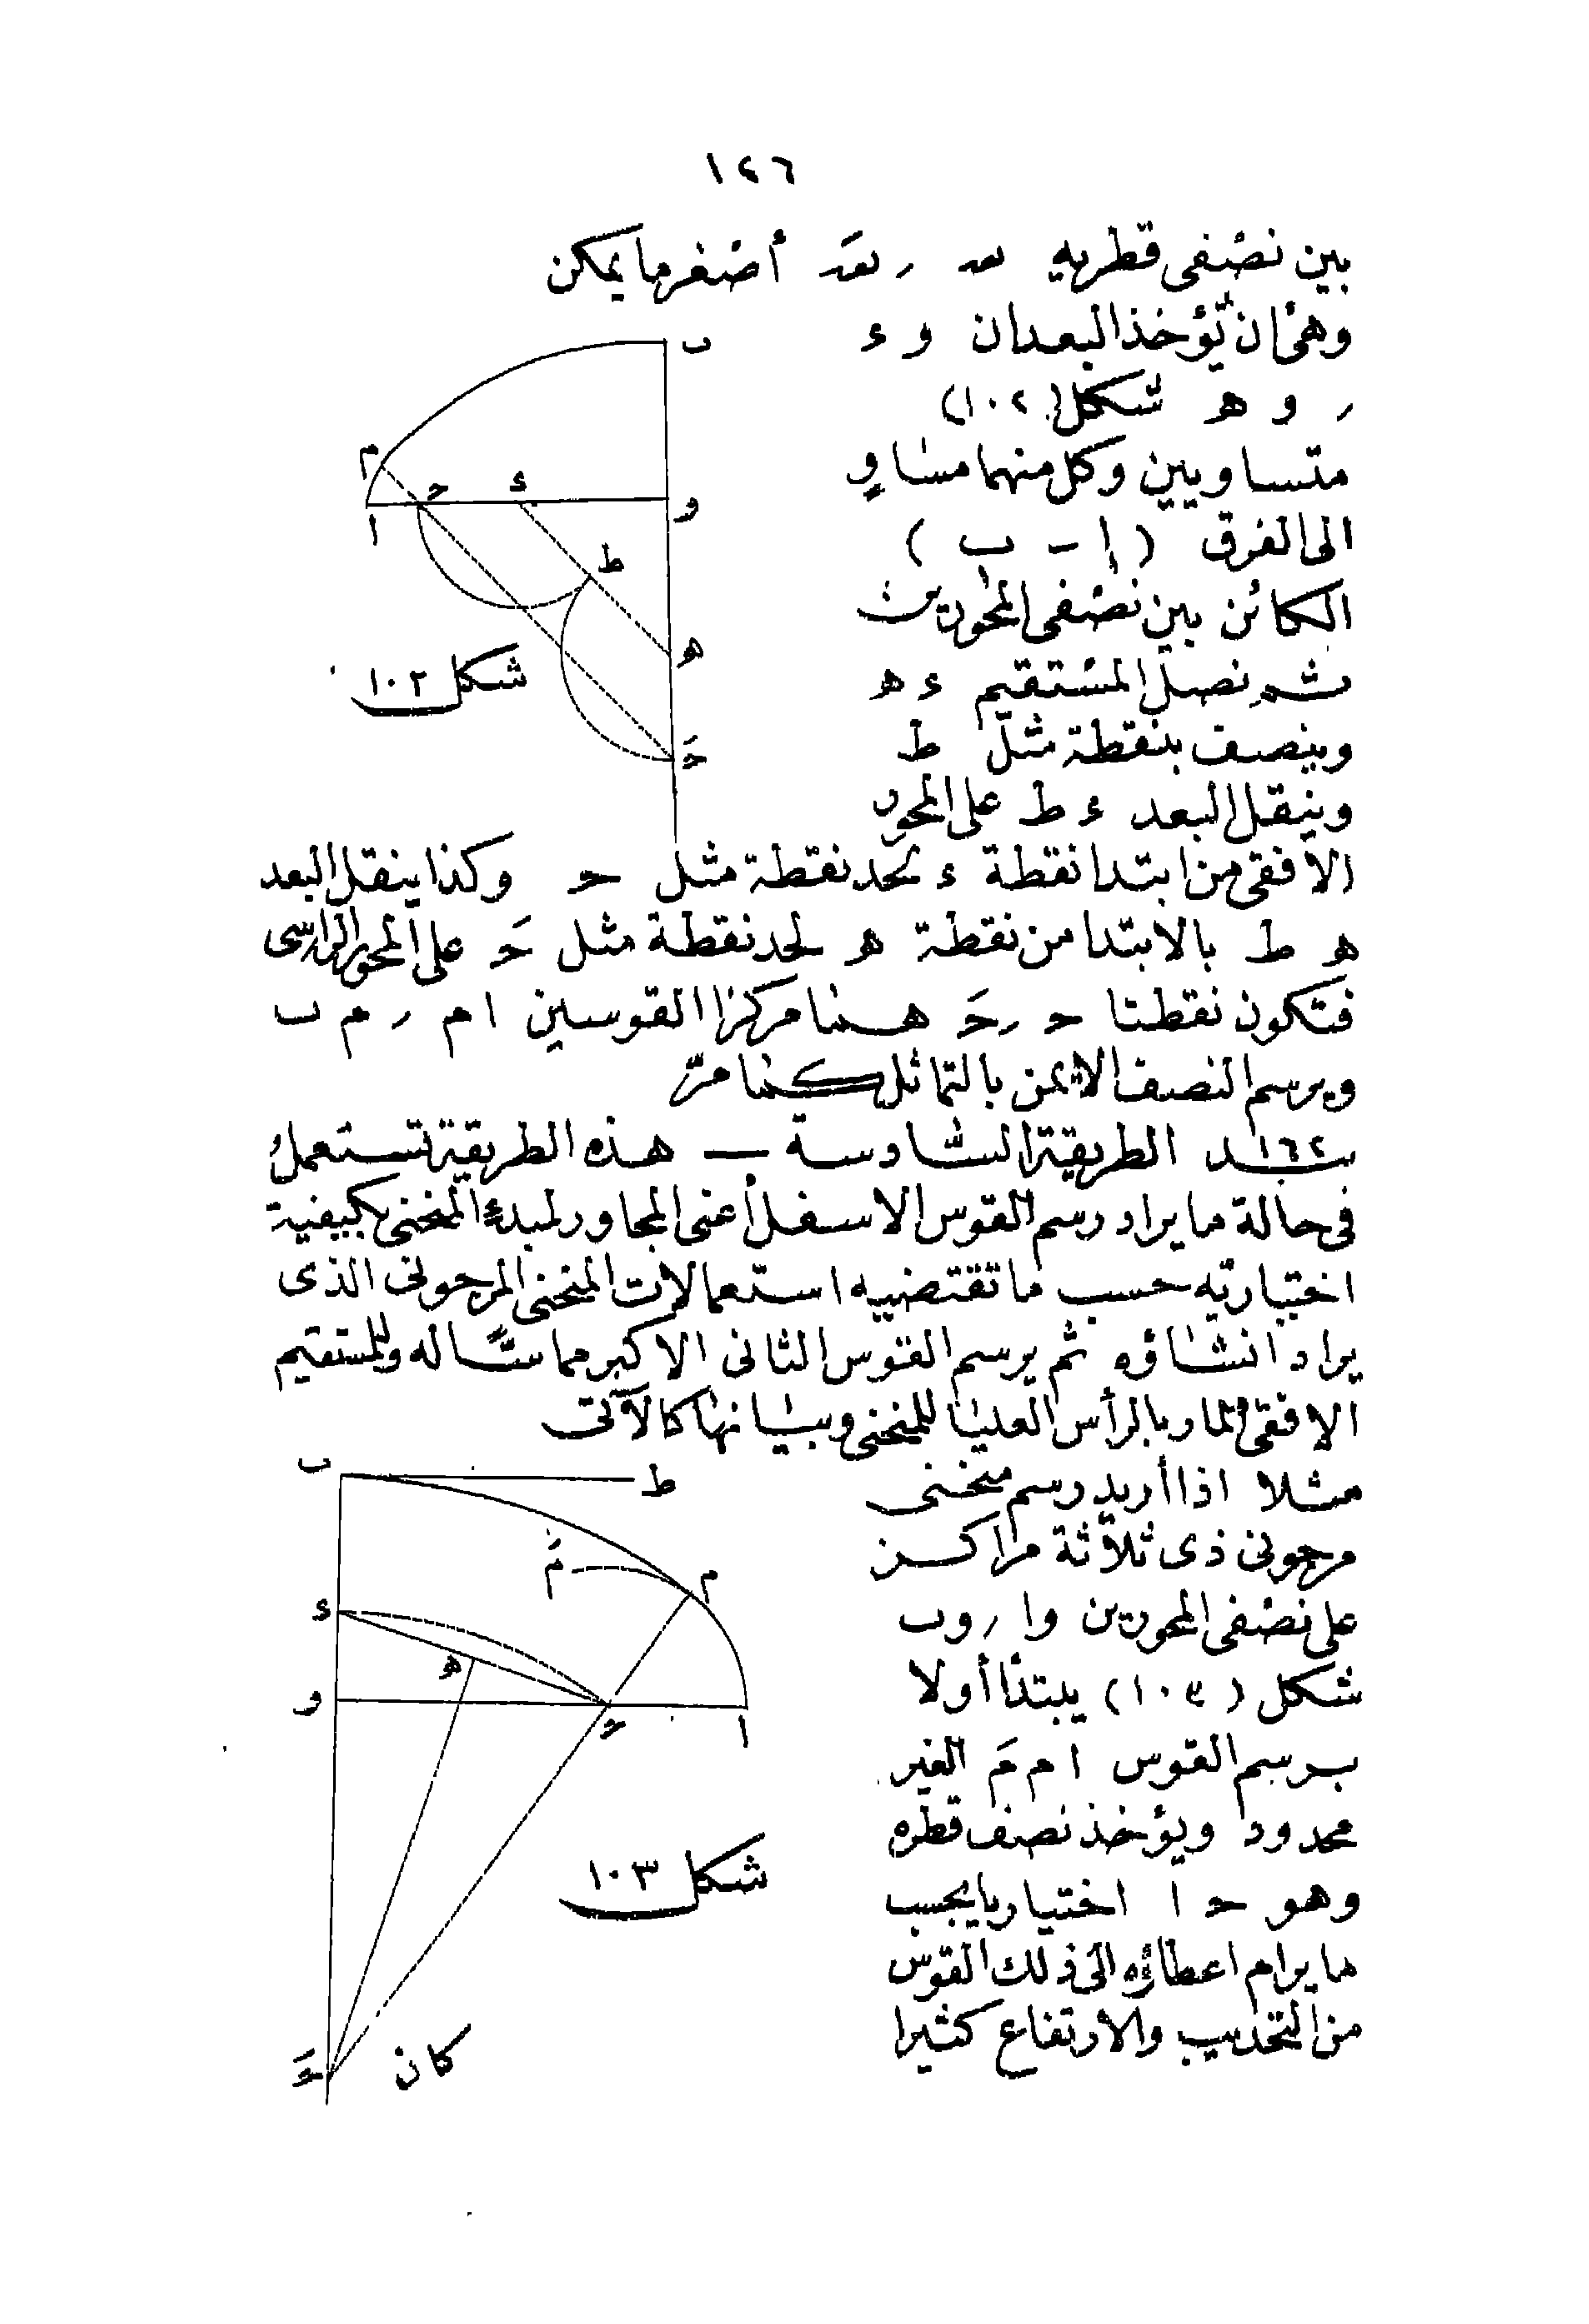 ١٤٦
بين نصفى قطريه نعه ر نعهَ أصغر ما يمكن
وهى ان تؤخذ البعدان و ء
ر و ه شكل (١٠٢)
متساويين وكل منهما مساوٍ
الى الفرق (ا - ب)
الكائن بين نصفى المحورين
ثم نصل المستقيم ء ه
وينصف بنقطة مثل ط
وينقل البعد ء ط على المحور
الافقى من ابتدا نقطة ء لحد نقطة مثل ح وكذا ينقل البعد
ه ط بالابتدا من نقطة ه لحد نقطة مثل حَ على المحور الراسى
فتكون نقطتا ح ر حَ هما مركزا القوسين ا م ر م ب
ويرسم النصف الايمن بالتماثل كما مرّ
ب
م
ح
ء
و
ا
ط
ه
حَ
شكل ١٠٢
١٦٢ بند الطريقة السادسة — هذه الطريقة تستعمل
فى حالة ما يراد رسم القوس الاسفل أعنى المجاور لمبدء المنحنى بكيفية
اختياريه حسب ما تقتضيه استعمالات المنحنى المرجونى الذى
يراد انشاؤه ثم يرسم القوس الثانى الاكبر مماسّا له وللمستقيم
الافقى المار بالرأس العليا للمنحنى وبيانها كالآتى
مثلا اذا أريد رسم منحنى
مرجونى ذى ثلاثة مراكز
على نصفى المحورين وا ر وب
شكل (١٠٣) يبتدأ أولا
برسم القوس ا م مَ الغير
محدود ويؤخذ نصف قطره
وهو ح ا اختياريا بحسب
ما يرام اعطاؤه الى ذلك القوس
من التحديب والارتفاع كثيرا
ب
ط
مَ
م
ء
ه
و
ح
ا
شكل ١٠٣
حَ
كان